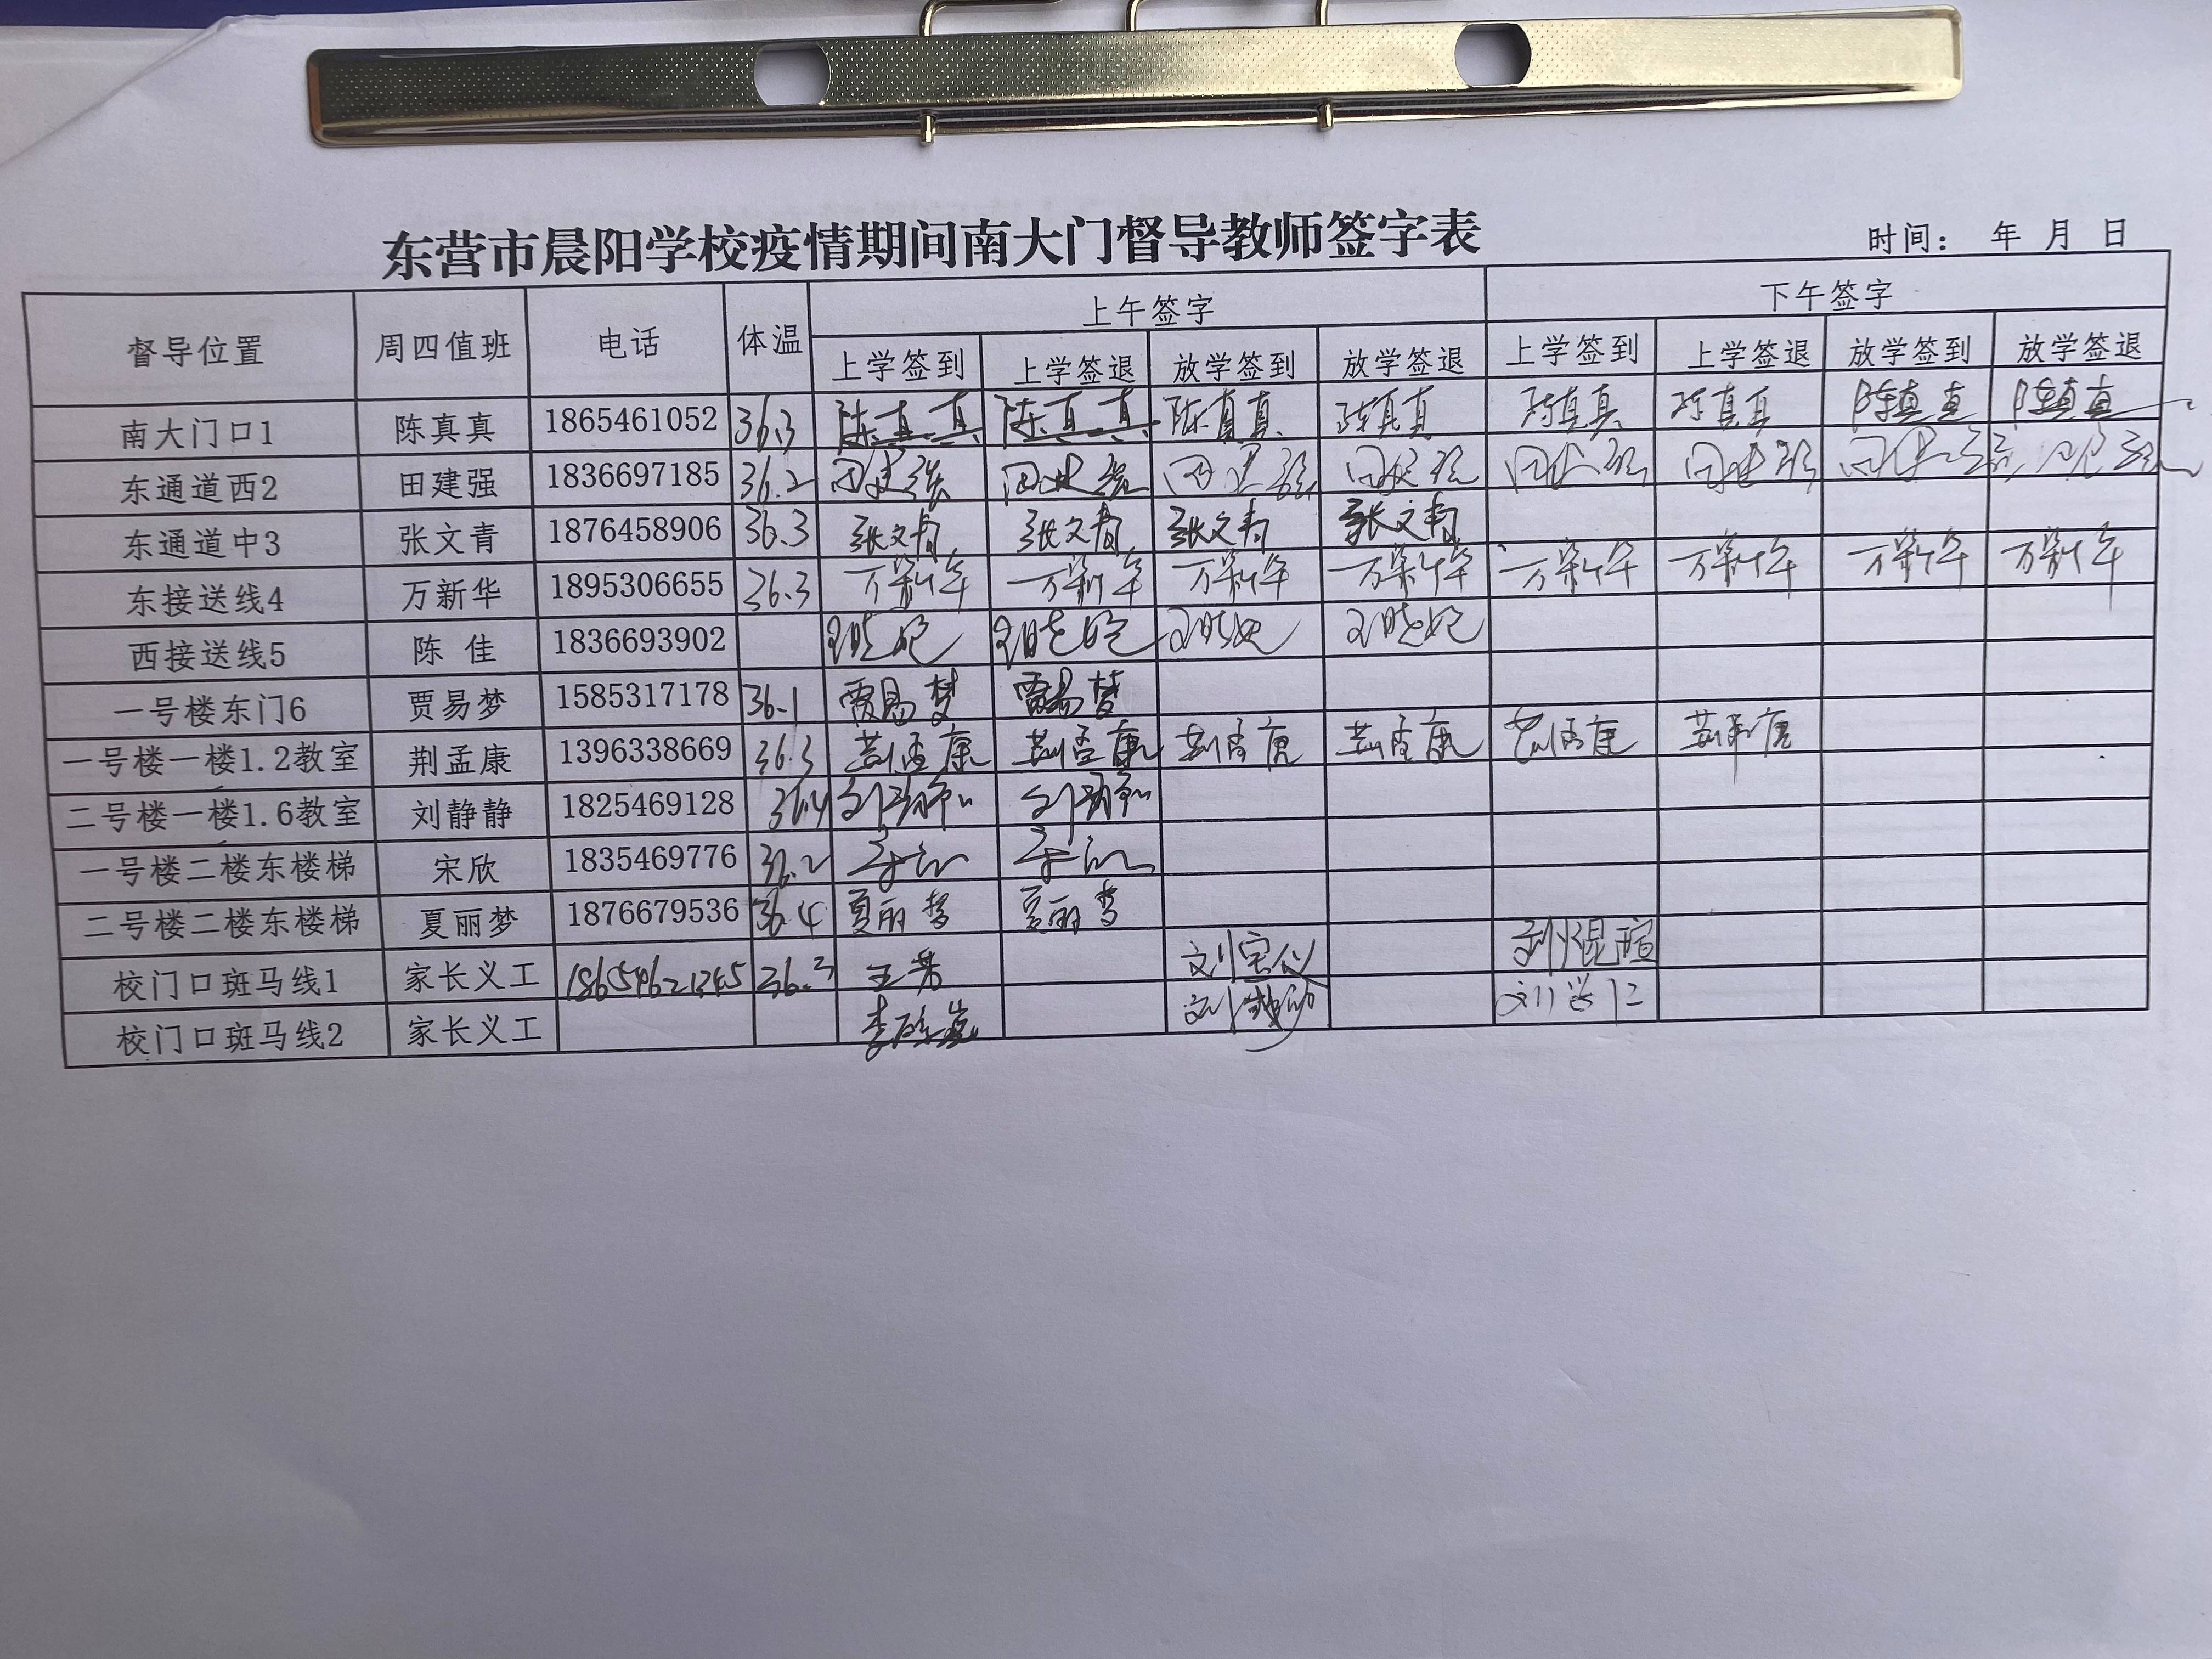 东营市晨阳学校疫情期间南大门督导教师签字表
时间： 年 月 日
督导位置 周四值班 电话 体温 上午签字 下午签字
上学签到 上学签退 放学签到 放学签退 上学签到 上学签退 放学签到 放学签退
南大门口1 陈真真 1865461052 36.3 陈真真 陈真真 陈真真 陈真真 陈真真 陈真真 陈真真 陈真真
东通道西2 田建强 1836697185 36.2 田建强 田建强 田建强 田建强 田建强 田建强 田建强 田建强
东通道中3 张文青 1876458906 36.3 张文青 张文青 张文青 张文青
东接送线4 万新华 1895306655 36.3 万新华 万新华 万新华 万新华 万新华 万新华 万新华 万新华
西接送线5 陈 佳 1836693902
一号楼东门6 贾易梦 1585317178 36.1 贾易梦 贾易梦
一号楼一楼1.2教室 荆孟康 1396338669 36.3 荆孟康 荆孟康 荆孟康 荆孟康 荆孟康 荆孟康
二号楼一楼1.6教室 刘静静 1825469128 36.4 刘静静 刘静静
一号楼二楼东楼梯 宋欣 1835469776 36.2 宋欣 宋欣
二号楼二楼东楼梯 夏丽梦 1876679536 36.4 夏丽梦 夏丽梦
校门口斑马线1 家长义工 36.3 王芳
校门口斑马线2 家长义工